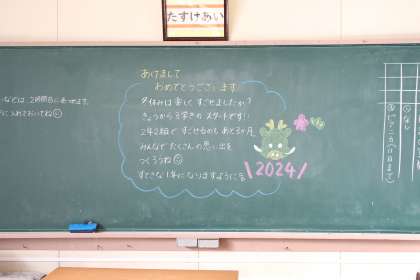 たすけあい
あけまして
おめでとうございます!
冬休みは楽しくすごせましたか?
きょうから3学きのスタートです!
2年2組ですごせるのもあと3か月
みんなでたくさんの思い出を
つくろうね
すてきな1年になりますように
2024